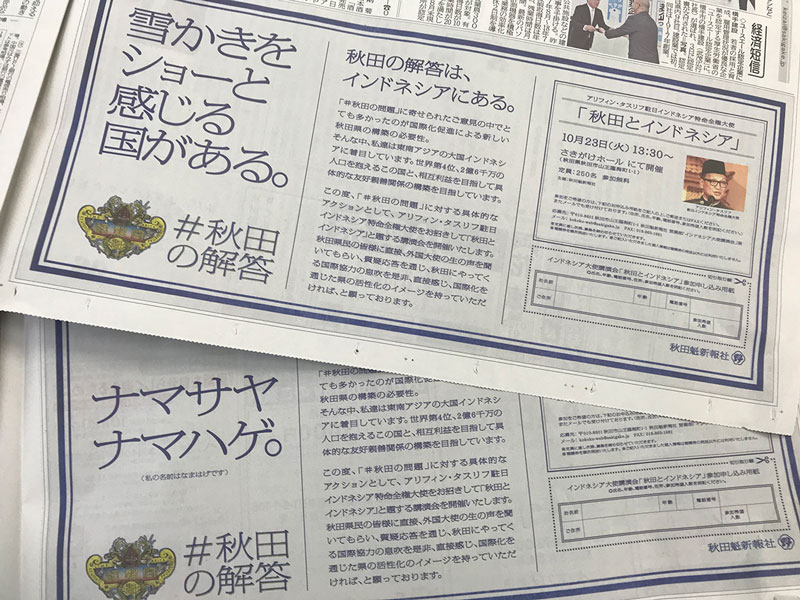 経済短信
雪かきを
ショーと
感じる
国がある。
#秋田
の解答
秋田の解答は、
インドネシアにある。
「#秋田の問題」に寄せられたご意見の中でと
ても多かったのが国際化促進による新しい
秋田県の構築の必要性。
そんな中、私達は東南アジアの大国インドネシ
アに着目しています。世界第4位、2億6千万の
人口を抱えるこの国と、相互利益を目指して具
体的な友好親善関係の構築を目指しています。
この度、「#秋田の問題」に対する具体的な
アクションとして、アリフィン・タスリフ駐日
インドネシア特命全権大使をお招きして「秋田と
インドネシア」と題する講演会を開催いたします。
秋田県民の皆様に直接、外国大使の生の声を聞
いてもらい、質疑応答を通じ、秋田にやってく
る国際協力の息吹を是非、直接感じ、国際化を
通じた県の活性化のイメージを持っていただ
ければ、と願っております。
アリフィン・タスリフ駐日インドネシア特命全権大使
「秋田とインドネシア」
10月23日(火) 13:30〜
さきがけホール にて開催
(秋田県秋田市山王臨海町1-1)
定員:250名 参加無料
主催:秋田魁新報社
アリフィン・タスリフ
駐日インドネシア特命全権大使
切り取り線
インドネシア大使講演会「秋田とインドネシア」参加申し込み用紙
お名前
年齢
電話番号
ご住所
参加希望
人数
秋田魁新報社
ナマサヤ
ナマハゲ。
(私の名前はなまはげです)
#秋田
の解答
ても多かったのが国際化促
秋田県の構築の必要性。
そんな中、私達は東南アジアの大国インドネシ
アに着目しています。世界第4位、2億6千万の
人口を抱えるこの国と、相互利益を目指して具
体的な友好親善関係の構築を目指しています。
この度、「#秋田の問題」に対する具体的な
アクションとして、アリフィン・タスリフ駐日
インドネシア特命全権大使をお招きして「秋田と
インドネシア」と題する講演会を開催いたします。
秋田県民の皆様に直接、外国大使の生の声を聞
いてもらい、質疑応答を通じ、秋田にやってく
る国際協力の息吹を是非、直接感じ、国際化を
通じた県の活性化のイメージを持っていただ
ければ、と願っております。
切り取り線
インドネシア大使講演会「秋田とインドネシア」参加申し込み用紙
お名前
年齢
電話番号
ご住所
参加希望
人数
秋田魁新報社